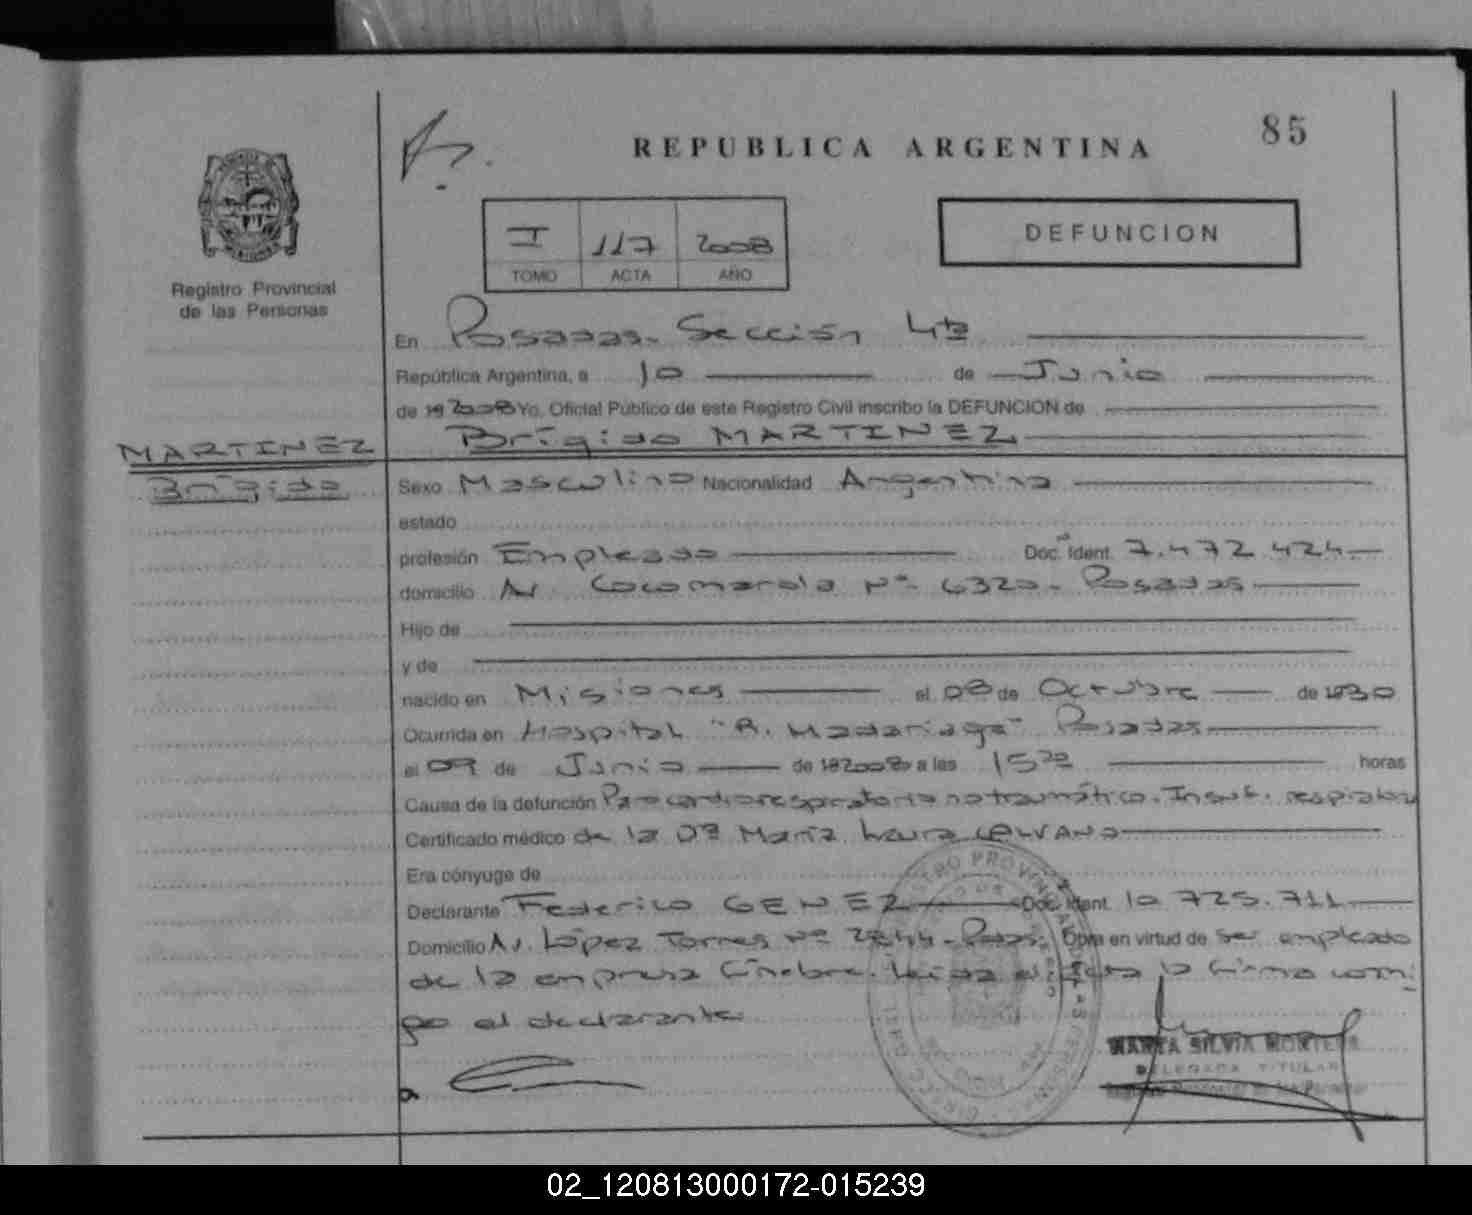 85
REPUBLICA ARGENTINA
I 117 2008
TOMO ACTA AÑO
DEFUNCION
Registro Provincial
de las Personas
En Posadas. Sección 4ta
República Argentina, a 10 de Junio
de 19 2008 Yo, Oficial Público de este Registro Civil inscribo la DEFUNCION de
MARTINEZ Brígido MARTINEZ
Brígido
Sexo Masculino Nacionalidad Argentina
estado
profesión Empleado Doc. Ident. 7.472.424
domicilio Av. Cocomarola Nº 6320. Posadas
Hijo de
y de
nacido en Misiones el 08 de Octubre de 1930
Ocurrida en Hospital "R. Madariaga" Posadas
el 09 de Junio de 19 2008 a las 15 horas
Causa de la defunción Paro cardiorespiratorio no traumático. Insuf. respiratoria
Certificado médico de la Dra María Laura
Era cónyuge de
Declarante Federico GENEZ Doc. Ident. 10.725.711
Domicilio Av. López Torres Nº 2844. Posadas. Obra en virtud de ser empleado
de la empresa Leída el Acta la firma conmi
go el declarante
MARTA SILVIA
DELEGADA TITULAR
02_120813000172-015239